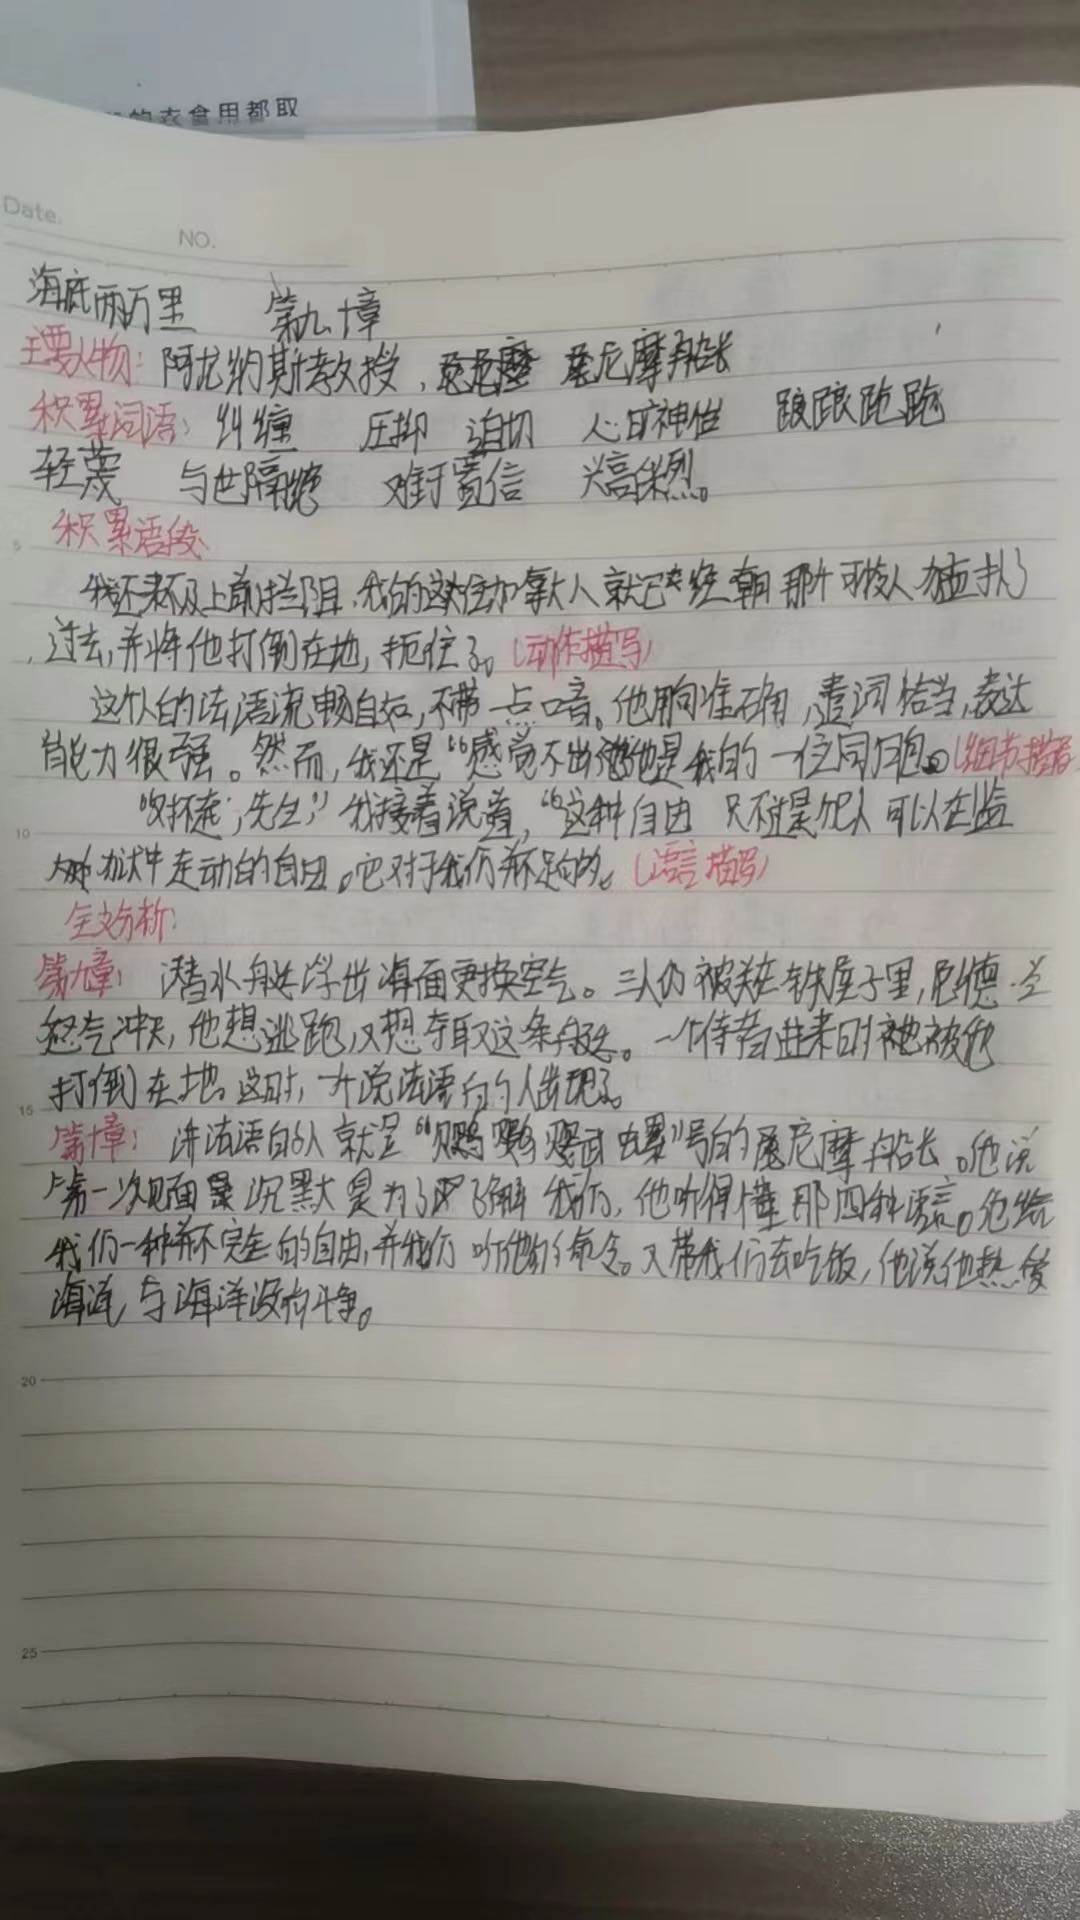 的衣食用都取
Date.
NO.
海底两万里 第九、十章
主要人物：阿龙纳斯教授，尼摩船长
积累词语：纠缠 压抑 迫切 心旷神怡 踉踉跄跄
轻蔑 与世隔绝 难于置信 兴高采烈。
积累语段
5
我还来不及上前拦阻，我的这位加拿大人就已经朝那个可怜人猛扑
过去，并将他打倒在地，扼住了。（动作描写）
这个人的法语流畅自如，不带一点口音。他用词准确，遣词恰当，表达
能力很强。然而，我还是“感觉不出他是我的一位同胞。（细节描写
“对不起，先生，”我接着说道，“这种自由只不过是犯人可以在监
10
狱中走动的自由。它对于我们并不足够的。（语言描写）
全文分析：
第九章：潜水船浮出海面更换空气。三人仍被关在铁屋子里，尼德·兰
怒气冲天，他想逃跑，又想夺取这条船。一个侍者进来时被他
打倒在地。这时，一个说法语的人出现了。
15
第十章：讲法语的人就是“鹦鹉螺”号的尼摩船长。他说
第一次见面沉默是为了了解我们，他听得懂那四种语言。他给
我们一种并不完全的自由，并我们听他的命令。又带我们去吃饭，他说他热爱
海洋，与海洋没有斗争。
20
25